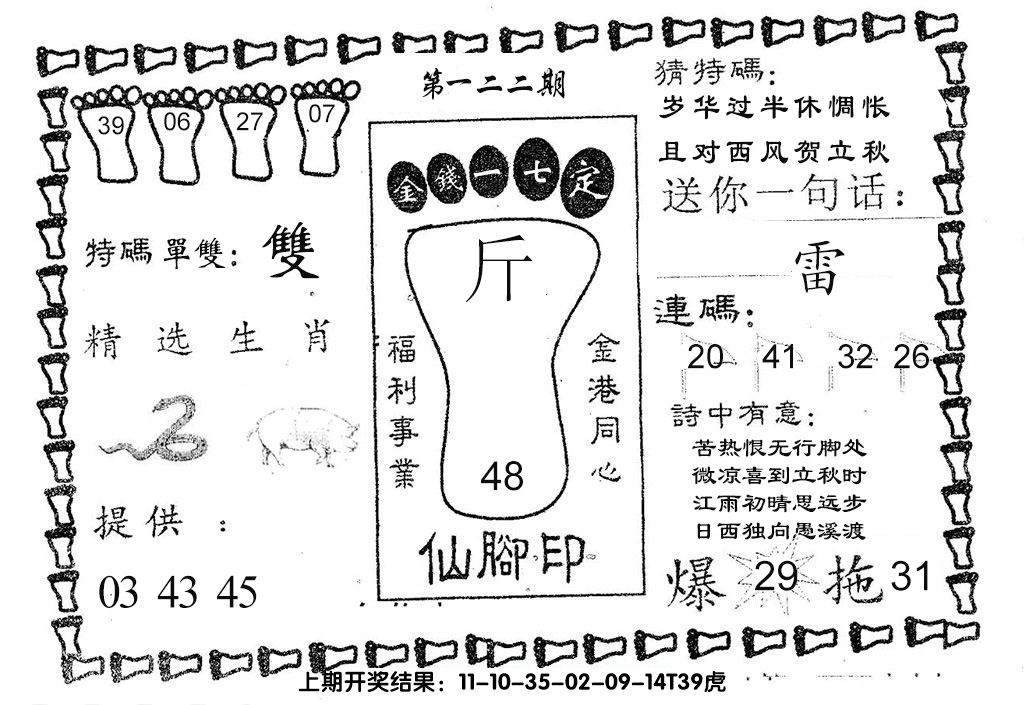 第一二二期
39 06 27 07
特碼單雙：雙
精选生肖
提供：
03 43 45
金錢一七定
斤
福利事業
金港同心
48
仙腳印
猜特碼：
岁华过半休惆怅
且对西风贺立秋
送你一句话：
雷
連碼：
20 41 32 26
詩中有意：
苦热恨无行脚处
微凉喜到立秋时
江雨初晴思远步
日西独向愚溪渡
爆 29 拖 31
上期开奖结果：11-10-35-02-09-14T39虎